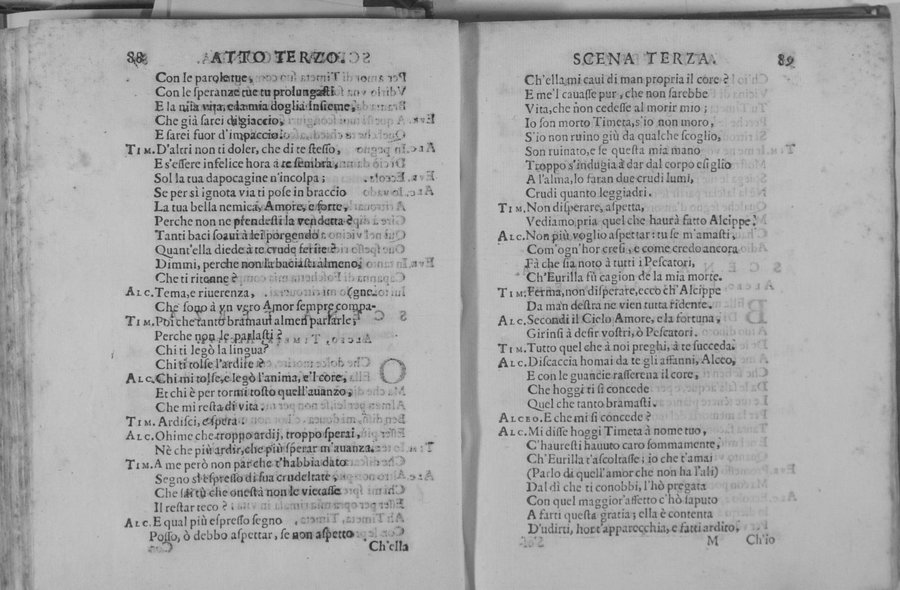 88 ATTO TERZO.
Con le parole tue,
Con le speranze tue tu prolungasti
E la mia vita, e la mia doglia insieme,
Che già sarei di giaccio,
E sarei fuor d'impaccio.
TIM. D'altri non ti doler, che di te stesso,
E s'essere infelice hora à te sembra,
Sol la tua dapocagine n'incolpa;
Se per sì ignota via ti pose in braccio
La tua bella nemica, Amore, e sorte,
Perche non ne prendesti la vendetta?
Tanti baci soaui à lei porgendo
Quant'ella diede à te crude ferite?
Dimmi, perche non la baciasti almeno,
Che ti ritenne?
ALC. Tema, e riuerenza, (gne.
Che sono à vn vero Amor sempre compa-
TIM. Poi che tanto bramaui almen parlarle,
Perche non le parlasti?
Chi ti legò la lingua?
Chi ti tolse l'ardire?
ALC. Chi mi tolse, e legò l'anima, e'l core,
Et chi è per tormi tosto quell'auanzo,
Che mi resta di vita.
TIM. Ardisci, e spera
ALC. Ohime che troppo ardij, troppo sperai,
Nè che più ardir, che più sperar m'auanza.
TIM. A me però non par che t'habbia dato
Segno sì espresso di sua crudeltate,
Che sai tù che onestà non le vietasse
Il restar teco?
ALC. E qual più espresso segno
Posso, ò debbo aspettar, se non aspetto
Ch'ella
SCENA TERZA. 89
Ch'ella mi caui di man propria il core?
E me'l cauasse pur, che non sarebbe
Vita, che non cedesse al morir mio;
Io son morto Timeta, s'io non moro,
S'io non ruino giù da qualche scoglio,
Son ruinato, e se questa mia mano
Troppo s'indugia à dar dal corpo esiglio
A l'alma, lo faran due crudi lumi,
Crudi quanto leggiadri.
TIM. Non disperare, aspetta,
Vediamo pria quel che haurà fatto Alcippe.
ALC. Non più voglio aspettar: tu se m'amasti,
Com'ogn'hor cresi, e come credo ancora
Fà che sia noto à tutti i Pescatori,
Ch'Eurilla fù cagion de la mia morte.
TIM. Ferma, non disperare, ecco ch'Alcippe
Da man destra ne vien tutta ridente.
ALC. Secondi il Cielo Amore, e la fortuna,
Girinsi à desir vostri, ò Pescatori.
TIM. Tutto quel che à noi preghi, à te succeda.
ALC. Discaccia homai da te gli affanni, Alceo,
E con le guancie rasserena il core,
Che hoggi ti si concede
Quel che tanto bramasti.
ALCEO. E che mi si concede?
ALC. Mi disse hoggi Timeta à nome tuo,
C'hauresti hauuto caro sommamente,
Ch'Eurilla t'ascoltasse; io che t'amai
(Parlo di quell'amor che non ha l'ali)
Dal dì che ti conobbi, l'hò pregata
Con quel maggior'affetto c'hò saputo
A farti questa gratia; ella è contenta
D'udirti, hor t'apparecchia, e fatti ardito,
M Ch'io